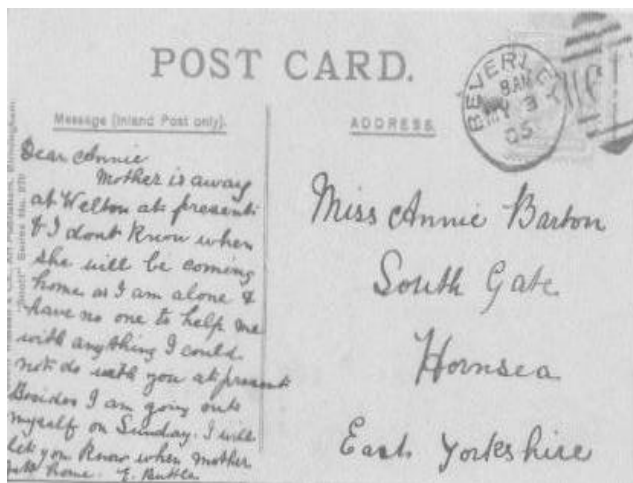 POST CARD.
Message (Inland Post only).
ADDRESS.
BEVERLEY
8 AM
MY 3
05
Dear Annie
Mother is away
at Welton at present
& I dont know when
she will be coming
home as I am alone &
have no one to help me
with anything I could
not do with you at present
Besides I am going out
myself on Sunday. I will
let you know when Mother
gets home. E.
Miss Annie Barton
South Gate
Hornsea
East Yorkshire